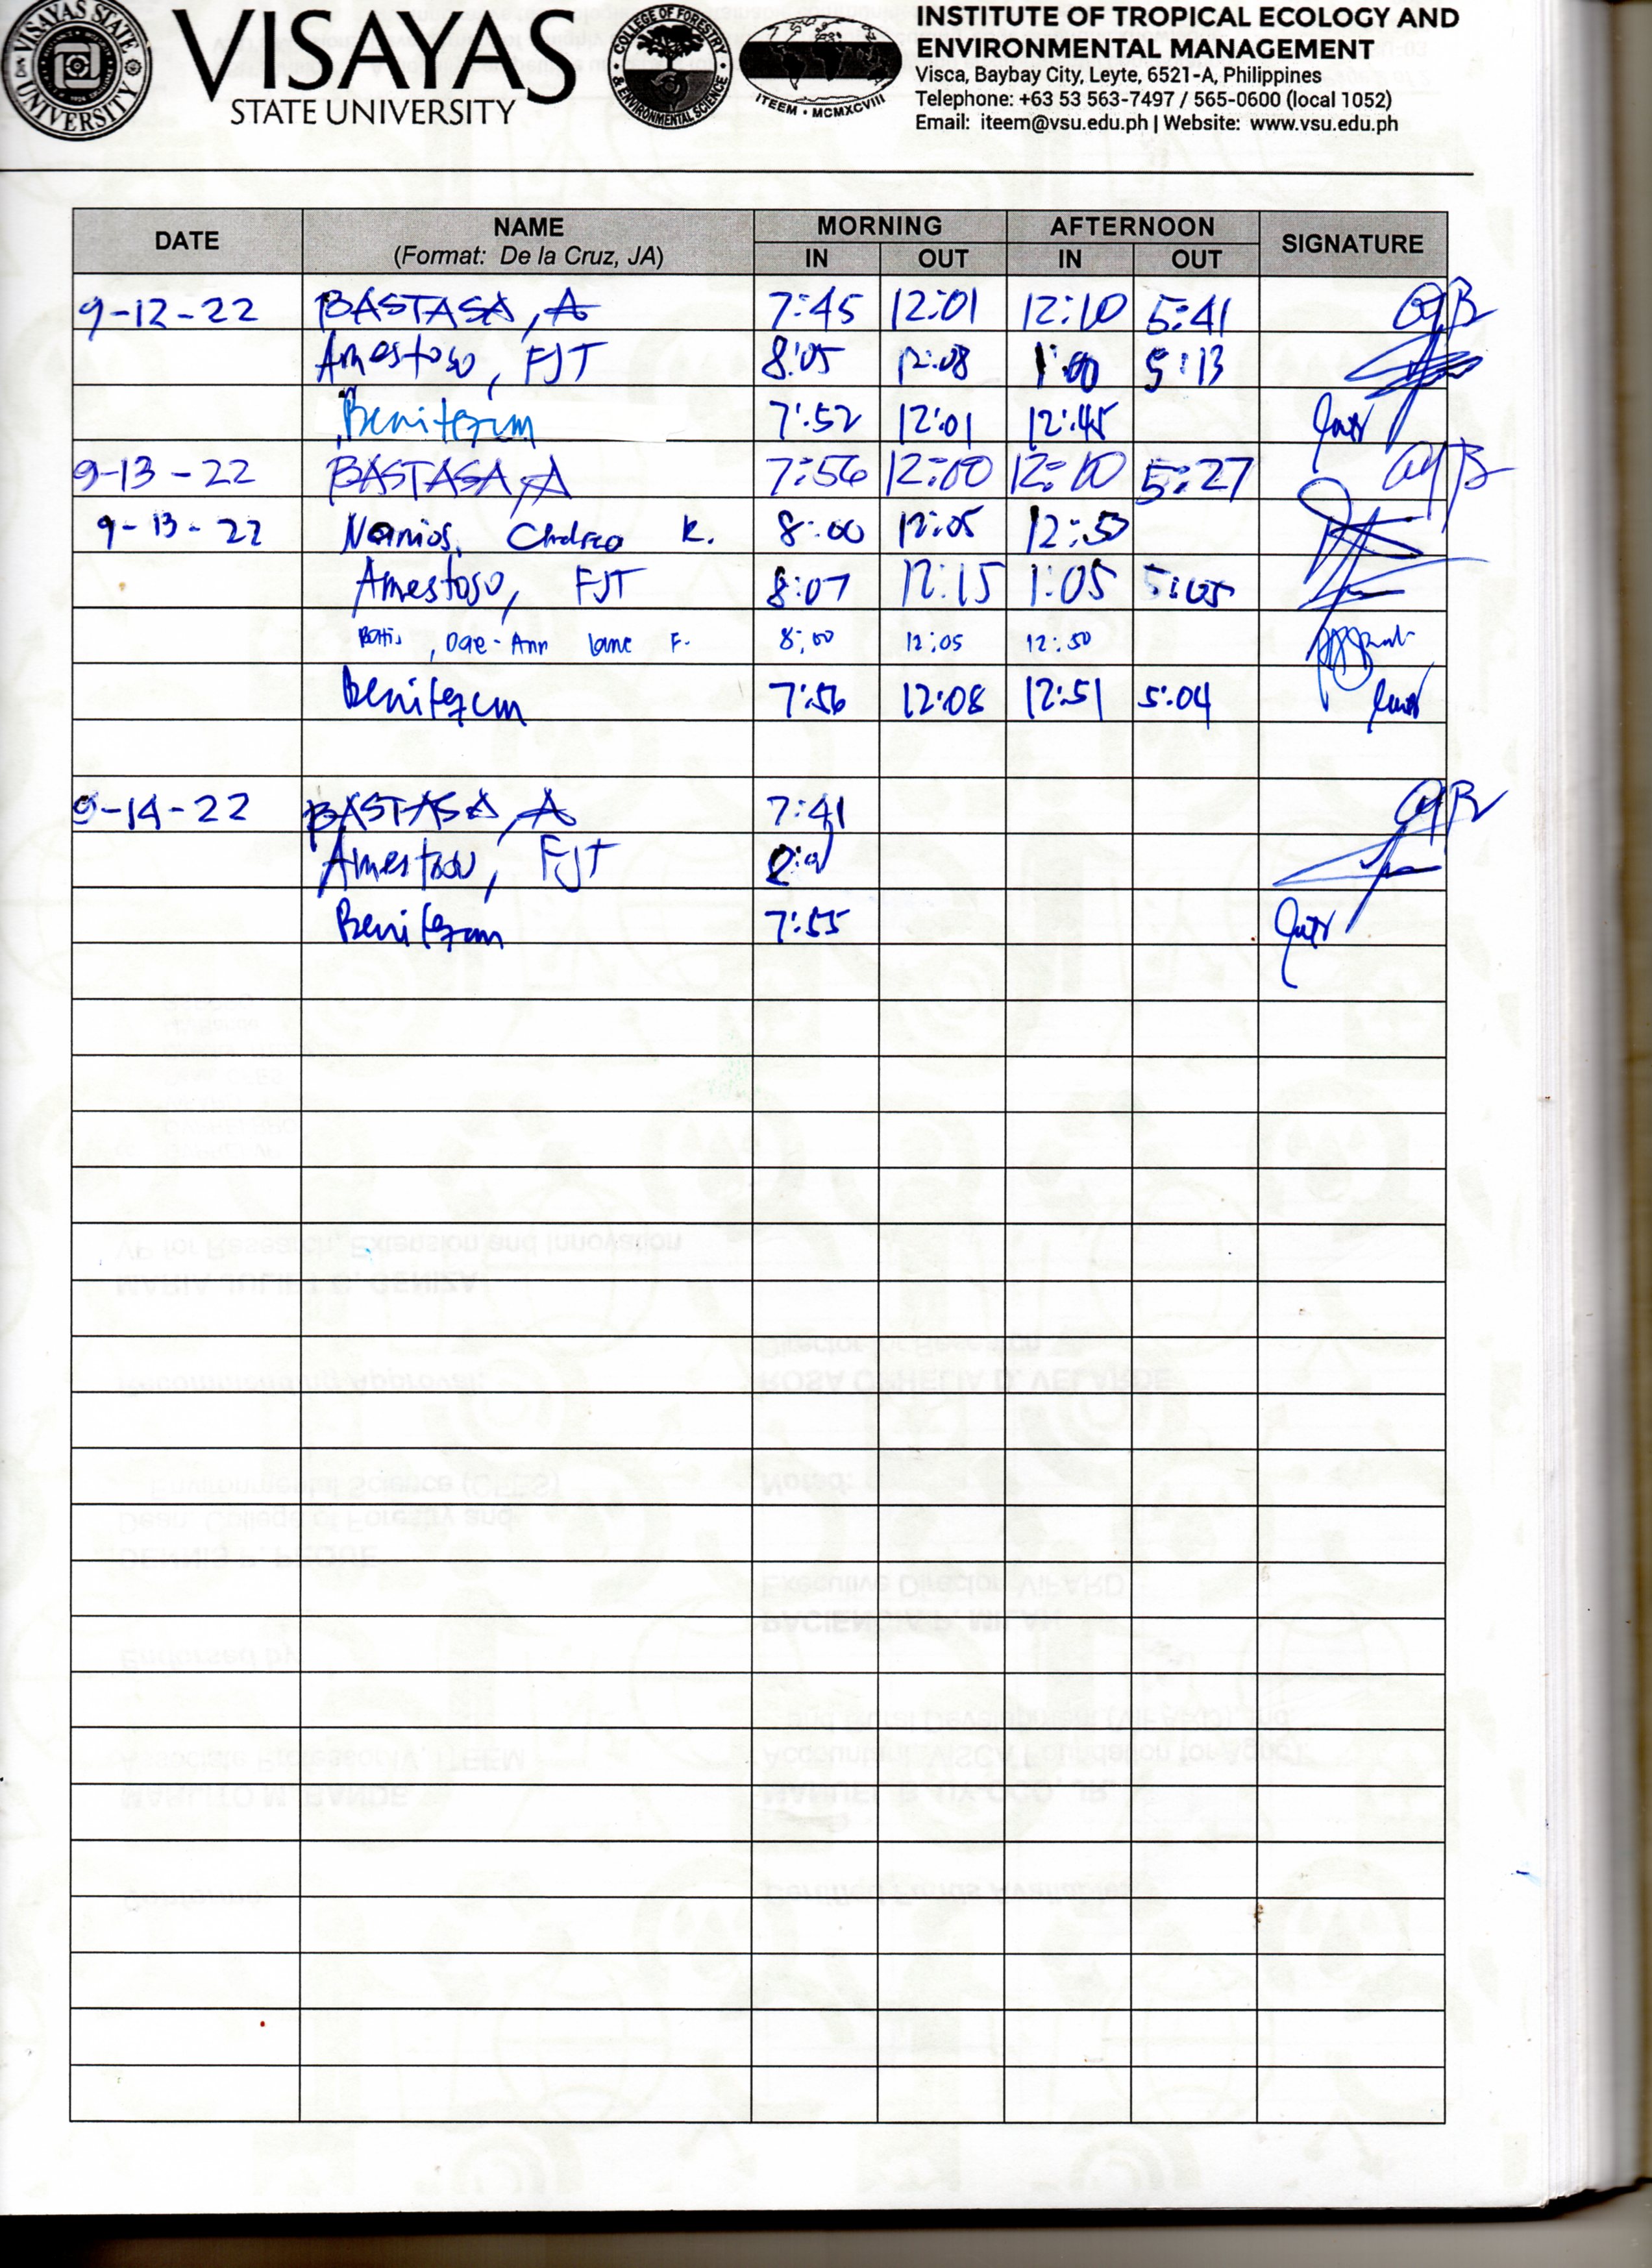 VISAYAS STATE UNIVERSITY
VISAYAS
STATE UNIVERSITY
COLLEGE OF FORESTRY
& ENVIRONMENTAL SCIENCE
ITEEM • MCMXCVIII
INSTITUTE OF TROPICAL ECOLOGY AND
ENVIRONMENTAL MANAGEMENT
Visca, Baybay City, Leyte, 6521-A, Philippines
Telephone: +63 53 563-7497 / 565-0600 (local 1052)
Email: iteem@vsu.edu.ph | Website: www.vsu.edu.ph
DATE NAME MORNING AFTERNOON SIGNATURE
(Format: De la Cruz, JA) IN OUT IN OUT
9-12-22 BASTASA, A 7:45 12:01 12:10 5:41
Amestoso, FJT 8:05 12:08 1:00 5:13
Benitezcm 7:52 12:01 12:45
9-13-22 BASTASA, A 7:56 12:00 12:10 5:27
9-13-22 K. 8:00 12:05 12:50
Amestoso, FJT 8:07 12:15 1:05 5:05
, Dae-Ann F. 8:00 12:05 12:50
Benitezcm 7:56 12:08 12:51 5:04
9-14-22 BASTASA, A 7:41
Amestoso, FJT
Benitezcm 7:55